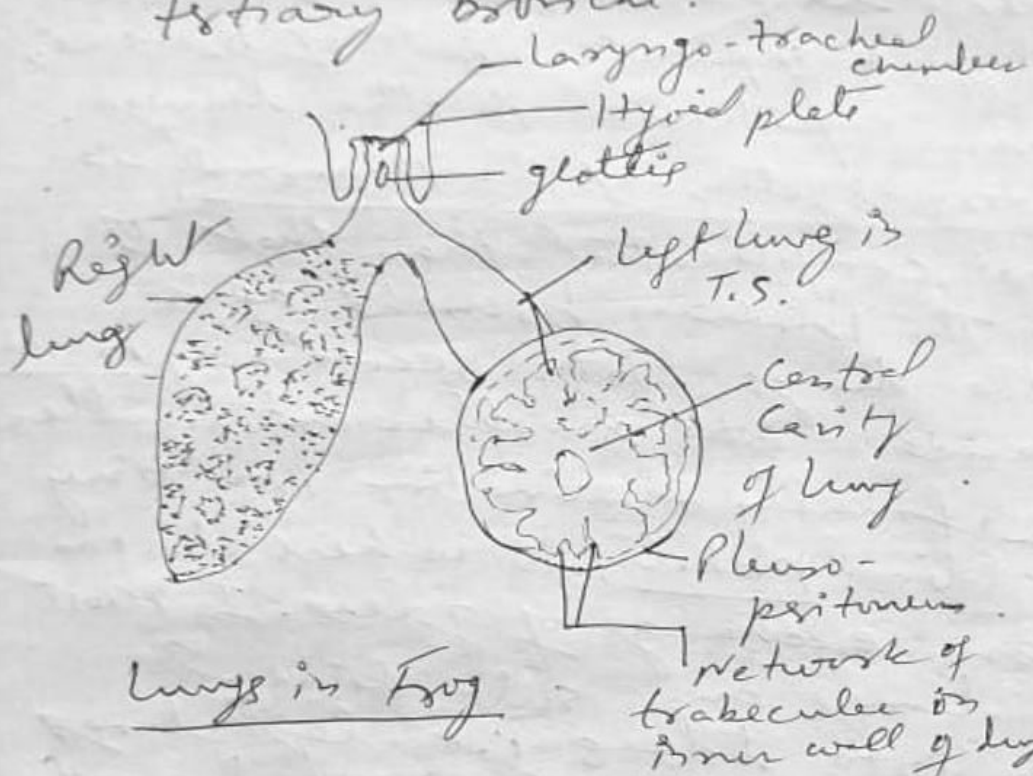 tertiary
Laryngo-tracheal
chamber
Hyoid plate
glottis
Right
lung
Left lung in
T.S.
Central
Cavity
of lung
Pleuro-
peritoneum
Network of
trabeculae on
inner wall of lung
Lungs in Frog